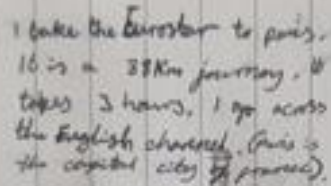 I take the Eurostar to paris.
It is a 38Km journey. It
takes 3 hours. I go across
the English channel. (paris is
the capital city of france).